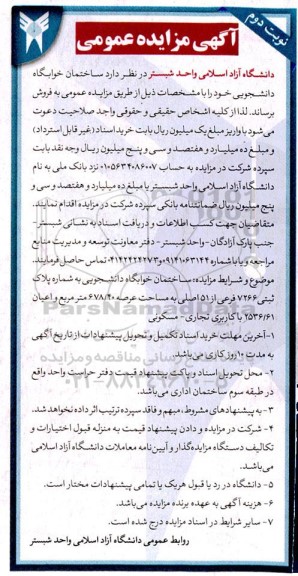 نوبت دوم
آگهی مزایده عمومی
دانشگاه آزاد اسلامی واحد شبستر در نظر دارد ساختمان خوابگاه
دانشجویی خود را با مشخصات ذیل از طریق مزایده عمومی به فروش
برساند. لذا از کلیه اشخاص حقیقی و حقوقی واجد صلاحیت دعوت
می‌شود با واریز مبلغ یک میلیون ریال بابت خرید اسناد (غیر قابل استرداد)
و مبلغ ده میلیارد و هفتصد و سی و پنج میلیون ریال وجه نقد بابت
سپرده شرکت در مزایده به حساب ۰۱۰۵۶۳۴۰۸۶۰۰۷ نزد بانک ملی به نام
دانشگاه آزاد اسلامی واحد شبستر یا مبلغ ده میلیارد و هفتصد و سی و
پنج میلیون ریال ضمانتنامه بانکی سپرده شرکت در مزایده اقدام نمایند.
متقاضیان جهت کسب اطلاعات و دریافت اسناد به نشانی شبستر -
جنب پارک آزادگان - واحد شبستر - دفتر معاونت توسعه و مدیریت منابع
مراجعه و یا با شماره ۰۹۱۴۱۶۳۱۲۴۴ و ۰۴۱۴۲۴۲۴۲۷۳ تماس حاصل فرمایند.
موضوع و شرایط مزایده: ساختمان خوابگاه دانشجویی به شماره پلاک
ثبتی ۷۲۶۶ فرعی از ۵۱ اصلی به مساحت عرصه ۶۷۸/۲۰ متر مربع و اعیان
۲۵۳۶/۶۱ با کاربری تجاری - مسکونی
۱- آخرین مهلت خرید اسناد تکمیل و تحویل پیشنهادات از تاریخ آگهی
به مدت ۱۰ روز کاری می‌باشد.
۲- محل تحویل اسناد و پاکت پیشنهاد قیمت دفتر حراست واحد واقع
در طبقه سوم ساختمان اداری می‌باشد.
۳- به پیشنهادهای مشروط، مبهم و فاقد سپرده ترتیب اثر داده نخواهد شد.
۴- شرکت در مزایده و دادن پیشنهاد قیمت به منزله قبول اختیارات و
تکالیف دستگاه مزایده‌گذار و آیین‌نامه معاملات دانشگاه آزاد اسلامی
می‌باشد.
۵- دانشگاه در رد یا قبول هریک یا تمامی پیشنهادات مختار است.
۶- هزینه آگهی به عهده برنده مزایده می‌باشد.
۷- سایر شرایط در اسناد مزایده درج شده است.
روابط عمومی دانشگاه آزاد اسلامی واحد شبستر